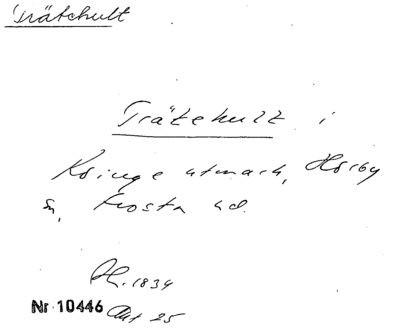 Trätehult
Trätehult i
Kringe utmark, Hörby
sn, Frosta hd.
Ah. 1834
Nr 10446 Akt 25